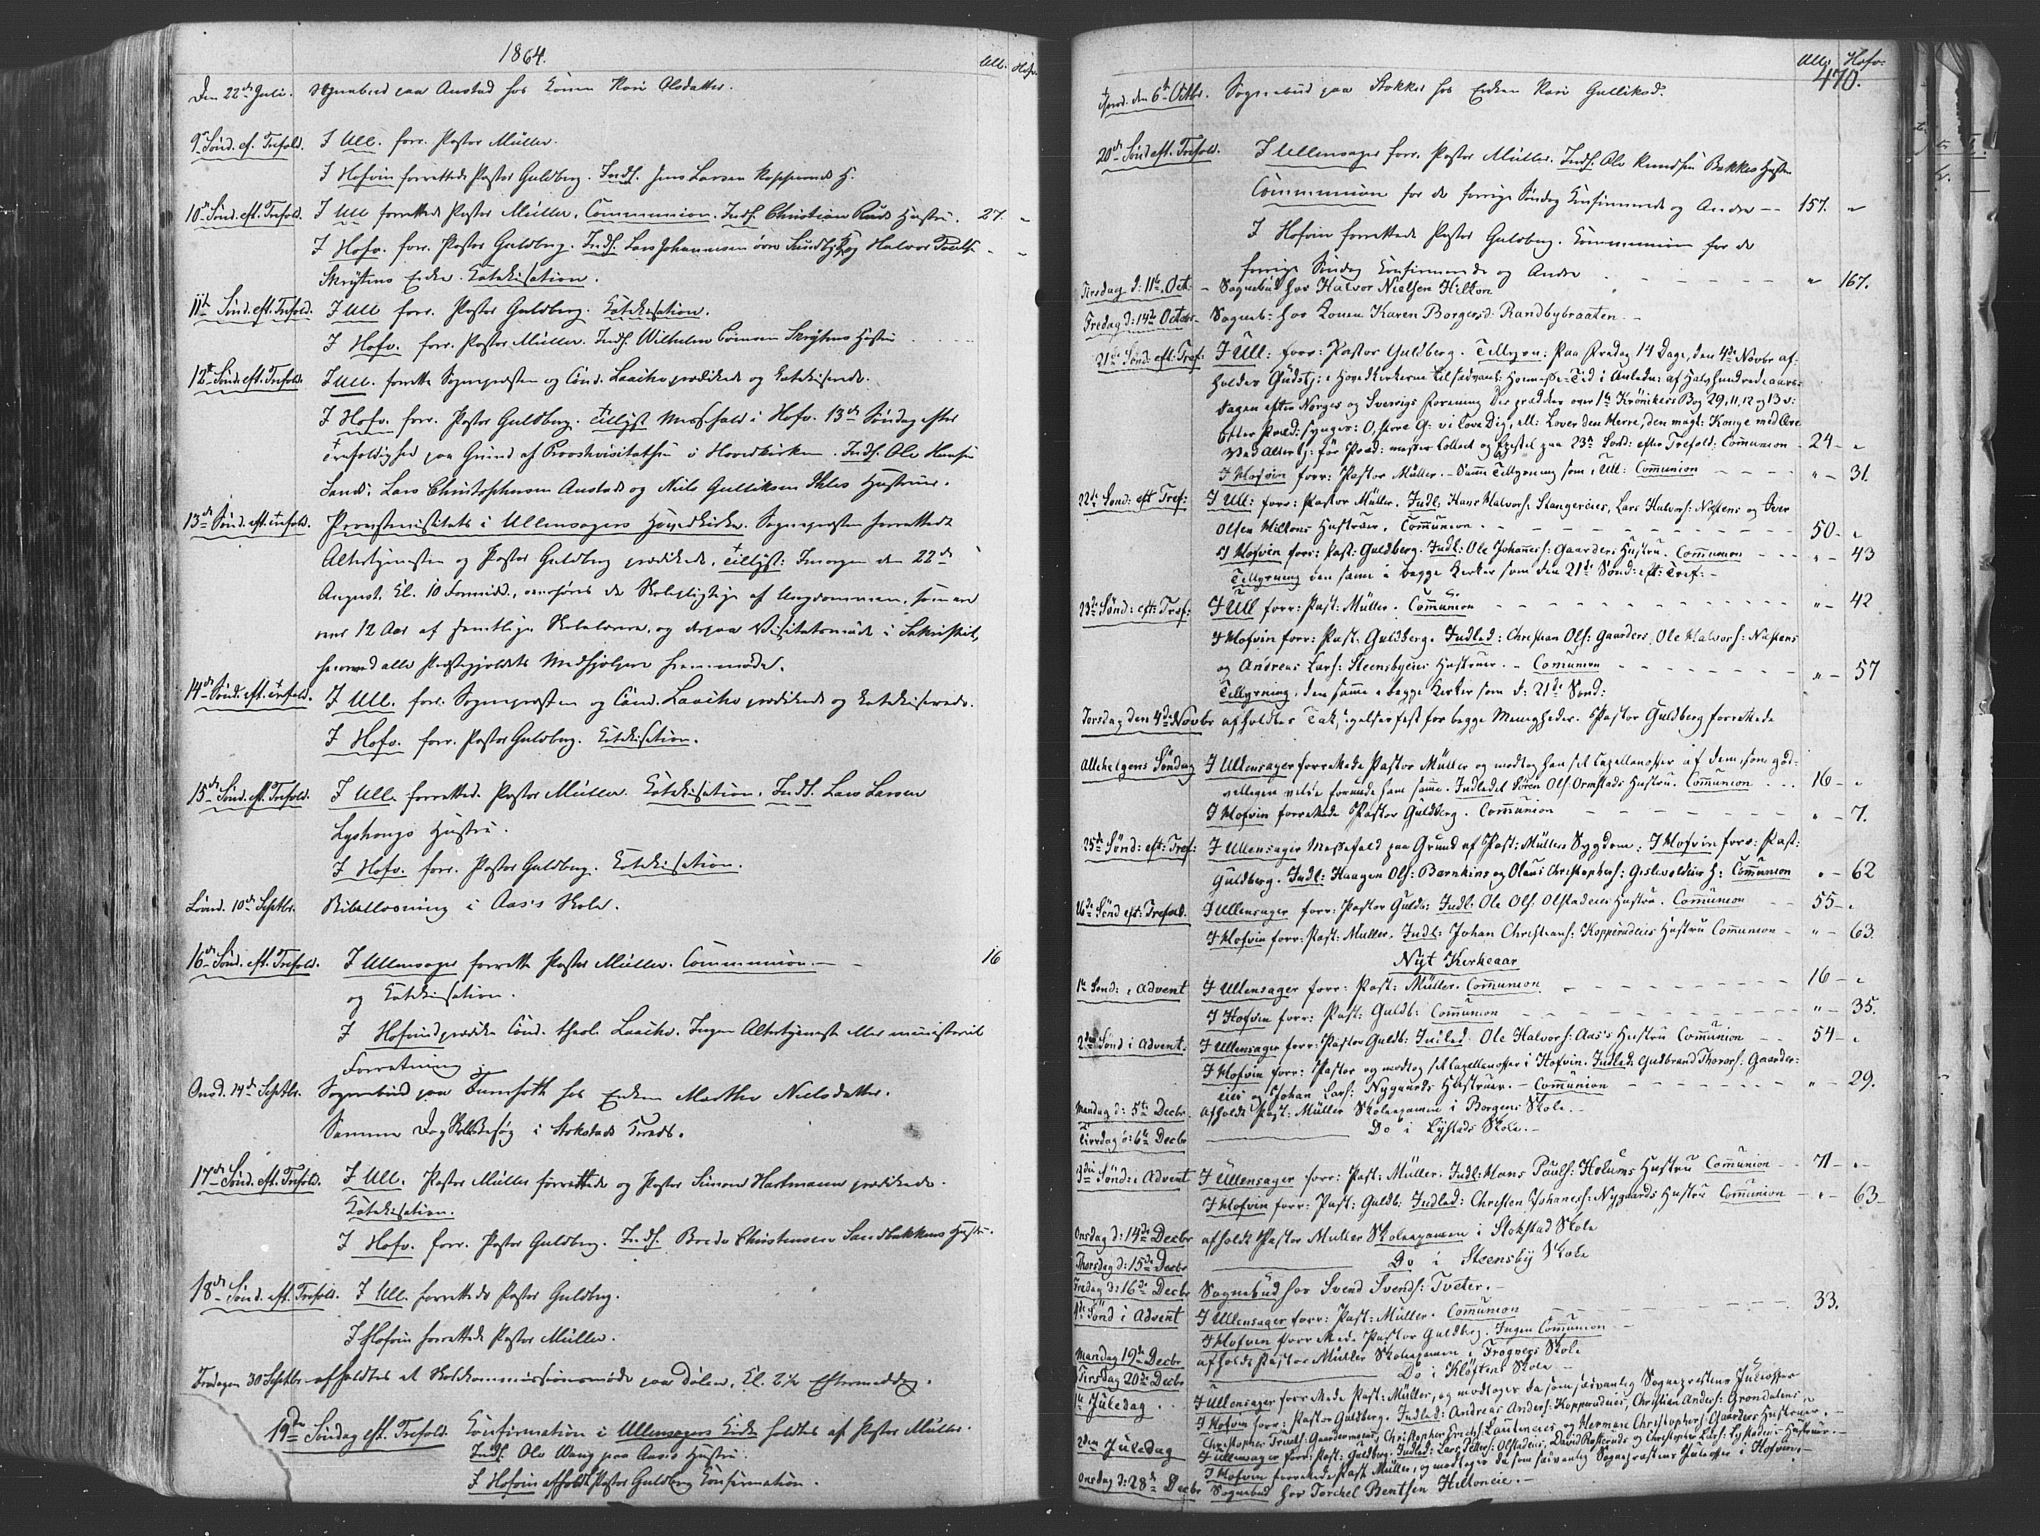 1864.
Ull. Hofv.
Den 22de Juli. Sognebud paa Austad hos Konen Kari Olsdatter.
9de Sønd. ef. Trefold. I Ull. forr. Pastor Müller.
I Hofvin forrettede Pastor Guldberg. Indl. Jens Larsen Kopperuds H.
10de Sønd. eft. Trefold. I Ull forrettede Pastor Müller. Communion. Indl. Christian Ruds Hustru. 27. "
I Hofv. forr. Pastor Guldberg. Indl. Lars Johannesen øvre Sundby og Halvor
Enke. Katekisation.
11te Sønd. eft. Trefold. I Ull forr. Pastor Guldberg. Katekisation.
I Hofv. forr. Pastor Müller. Indl. Wilhelm Hustru
12te Sønd. eft. Trefold. I Ull. forrettede Sognepresten og Cand. Laache prædikede og katekiserede.
I Hofv. forr. Pastor Guldberg. Tillyst Messefald i Hofv. 13de Søndag efter
Trefoldighed paa Grund af Provstevisitatsen i Hovedkirken. Indl. Ole Hansen
Sand, Lars Christophersen Austad og Niels Gulliksen Hustruer.
13de Sønd. eft. Trefold. Provstevisitats i Ullensagers Hovedkirke. Sognepresten forrettede
Altertjenesten og Pastor Guldberg prædikede. Tillyst: Imorgen den 22de
August Kl. 10 Formidd., overhøres de Skolepligtige af Ungdommen, som ere
over 12 Aar af samtlige Skolelærere, og derpaa Visitatsmøde i Sakristiet,
hvorved alle Præstegjeldets Medhjelpere fremmøde.
14de Sønd. eft. Trefold. I Ull. forr. Sognepresten og Cand. Laache prædikede og katekiserede.
I Hofv. forr. Pastor Guldberg. Katekisation.
15de Sønd. eft. Trefold. I Ull. forrettede Pastor Müller. Katekisation. Indl. Lars Larsen
Hustru.
I Hofv. forr. Pastor Guldberg. Katekisation.
Lørd. 10de Septbr. Bibellæsning i Aas's Skole.
16de Sønd. eft. Trefold. I Ullensager forrettede Pastor Müller. Communion. — 16
og Katekisation.
I Hofvin prædikede Cand. theol. Laache. Ingen Altertjeneste eller ministeriel
Forretning.
Onsd. 14de Septbr. Sognebud paa hos Enken Marthe Nielsdatter.
Samme Dag Skolebesøg i Stokstads Kreds.
17de Sønd. eft. Trefold. I Ull. Pastor Müller forrettede og Pastor Simon Hartmann prædikede.
Katekisation.
I Hofv. forr. Pastor Guldberg. Indl. Brede Christensen Sandbakkens Hustru.
18de Sønd. eft. Trefold. I Ull. forrettede Pastor Guldberg.
I Hofvin forrettede Pastor Müller.
Fredagen 30 Septbr afholdtes et Skolekommissionsmøde paa Dølen, Kl. 2½ Eftermiddag.
19de Søndag eft. Trefold. Konfirmation i Ullensagers Kirke holdtes af Pastor Müller.
Indl. Ole Wang paa Aas's Hustru.
I Hofvin afholdt Pastor Guldberg Confirmation.
Ull. Hofv.
470.
Torsd. den 6te Octbr. Sognebud paa Stokker hos Enken Kari Gulliksd.
20de Sønd. eft. Trefold. I Ullensager forr. Pastor Müller. Indl. Ole Knudsen Bakkes Hustru
Communion for de forrige Søndag Konfirmerede og Andre — 157. "
I Hofvin forrettede Pastor Guldberg. Kommunion for de
forrige Søndag Konfirmerede og Andre " 167.
Tirsdag d: 11te Oct. Sognebud hos Halvor Nielsen Hilton
Fredag d: 14de October Sogneb: hos Konen Karen Borgersd: Randbybraaten.
21de Sønd: eft: Tref: I Ull: forr: Pastor Guldberg. Tillysn: Paa Fredag 14 Dage, den 4de Novbr af-
holdes Gudstj: i Hovedkirkerne til sædvanl: Høimesse-Tid i Anledn: af Halvhundredeaars-
dagen efter Norges og Sverrigs Forening Der prædikes over 1te Krønikers Bog 29, 11, 12 og 13 v:
Efter Præd: synges: O, store G: vi love Dig, ell: Lover den Herre, den mægt: Konge med Ære
Ved Altertj: før Præd: messes Collect og Epistel paa 23de Sønd: efter Trefold: Communion — 24 — "
I Hofvin forr: Pastor Müller. — Samme Tillysning som i Ull: Communion — " — 31.
22de Sønd: eft Tref: I Ull: forr: Pastor Müller. Indl: Hans Halvors: Stangereies, Lars Halvors: Næstens og Iver
Olsen Hiltons Hustruer. Communion. — 50 — "
I Hofvin forr: Past: Guldberg. Indl: Ole Johannes: Gaarders Hustru. Communion — " — 43
Tillysning den samme i begge Kirker som den 21de Sønd: eft: Tref: —
23de Sønd: eft: Tref: I Ull forr: Past: Müller. Communion — " — 42
I Hofvin forr: Past: Guldberg. Indled: Christian Ols: Gaarders, Ole Halvors: Næstens
og Andreas Lars: Steensbyeies Hustruer. — Comunion — " — 57
Tillysning. den samme i begge Kirker som d: 21de Sønd:
Torsdag den 4de Novbr afholdtes Taksigelsesfest for begge Menigheder. Pastor Guldberg forrettede
Allehelgens Søndag I Ullensager forrettede Pastor Müller og modtog han sit Capellanoffer af dem, som god-
villigen vilde forunde ham samme. Indledet Søren Ols: Ormstads Hustru. Communion . . . 16 — "
I Hofvin forrettede Pastor Guldberg. Communion — " — 7.
25de Sønd: eft: Tref: I Ullensager Messefald paa Grund af Past: Müllers Sygdom. I Hofvin forr: Past:
Guldberg. Indl: Haagen Ols: Barnkins og Olaus Christophers: Gislevoldeie H: Communion " — 62
26de Sønd eft: Trefold. I Ullensager forr: Pastor Guldb: Indl: Ole Ols: Olstadeies Hustru. Comunion — 55 — "
I Hofvin forr: Past: Müller. Indl: Johan Christians: Kopperudeies Hustru Comunion — " — 63.
Nyt Kirkeaar
1te Sønd: i Advent I Ullensager forr: Past: Müller. Communion — 16 — "
I Hofvin forr: Past: Guldb: Communion — " — 35.
2den Sønd i Advent. I Ullensager forr: Pastor Guldb: Indled: Ole Halvors: Aas's Hustru Communion — 54 — "
I Hofvin forr: Pastor og modtog sit Capellanoffer i Hofvin. Indled: Guldbrand Thorers: Gaarder-
eies og Johan Lars: Nygaards Hustruer. — Communion — " — 29.
Mandag d: 5te Decbr afholdt Past: Müller Skoleexamen i Borgens Skole. —
Tirsdag d: 6te Decbr — Do i Lystads Skole. —
3die Sønd: i Advent I Ullensager forr: Past: Müller. Indl: Hans Pauls: Holums Hustru Communion — 71 — "
I Hofvin forr: Past: Guldb. Indled: Christen Johannes: Nygaards Hustru Communion — " — 63 —
Onsdag d: 14de Decbr afholdt Pastor Müller Skoleexamen i Stokstad Skole
Thorsdag d: 15de Decbr — Do i Steensby Skole
Fredag d: 16de Decbr Sognebud hos Svend Svends: Tveter. —
4de Sønd i Advent I Ullensager forr: Past: Müller. Communion — 33.
I Hofvin forrettede Pastor Guldberg. Ingen Communion —
Mandag 19de Decbr afholdt Pastor Müller Skoleexamen i Frogners Skole
Tirsdag 20de Decbr — Do i Kløftens Skole —
1te Juledag . . I Ullensager forrettede Past: Müller, og modtoges da som sædvanlig Sogneprestens Juleoffer
I Hofvin forr: Pastor Guldberg. Indled: Andreas Anders: Kopperudeies, Christian Anders: Grøndalens
Christopher Truuls: Gaardermoens, Christopher Erichs: Lauteneies og Herman Christophers: Gaarders Hustruer. —
2den Juledag I Ullensager forr: Past: Guldberg. Indled: Lars Peders: Olstadeies, David Rosteruds og Christopher Lars: Lystadeies Hustruer. —
I Hofvin forrettede Past: Müller, og modtoges da som sædvanlig Sogneprestens Juleoffer i Hofvin. —
Onsdag d: 28de Decbr Sognebud hos Torchel Bentsen Hiltoneie. —